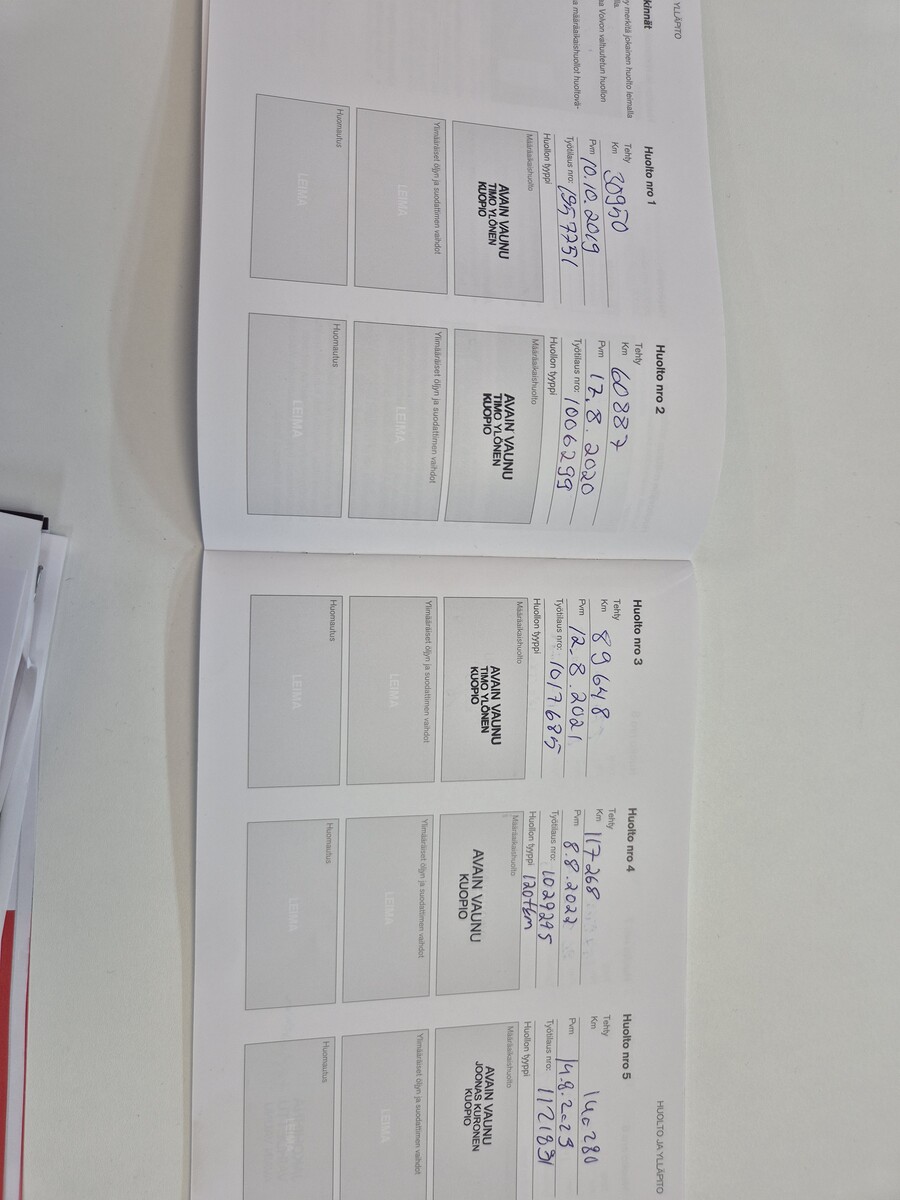 YLLÄPITO
kinnät
y merkitä jokainen huolto leimalla
aa Volvon valtuutetun huollon
a määräaikaishuollot huoltovä-
Huolto nro 1
Tehty
Km 30950
Pvm 10.10.2019
Työtilaus nro: 1957751
Huollon tyyppi
Määräaikaishuolto
AVAIN VAUNU
TIMO YLÖNEN
KUOPIO
Ylimääräiset öljyn ja suodattimen vaihdot
LEIMA
Huomautus
LEIMA
Huolto nro 2
Tehty
Km 60887
Pvm 17.8.2020
Työtilaus nro: 1006299
Huollon tyyppi
Määräaikaishuolto
AVAIN VAUNU
TIMO YLÖNEN
KUOPIO
Ylimääräiset öljyn ja suodattimen vaihdot
LEIMA
Huomautus
LEIMA
Huolto nro 3
Tehty
Km 89648
Pvm 12.8.2021
Työtilaus nro: 1017685
Huollon tyyppi
Määräaikaishuolto
AVAIN VAUNU
TIMO YLÖNEN
KUOPIO
Ylimääräiset öljyn ja suodattimen vaihdot
LEIMA
Huomautus
LEIMA
Huolto nro 4
Tehty
Km 117268
Pvm 8.8.2022
Työtilaus nro: 1029295
Huollon tyyppi 120tkm
Määräaikaishuolto
AVAIN VAUNU
KUOPIO
Ylimääräiset öljyn ja suodattimen vaihdot
LEIMA
Huomautus
LEIMA
HUOLTO JA YLLÄPITO
Huolto nro 5
Tehty
Km 140280
Pvm 14.8.2023
Työtilaus nro: 1121891
Huollon tyyppi
Määräaikaishuolto
AVAIN VAUNU
JOONAS KURONEN
KUOPIO
Ylimääräiset öljyn ja suodattimen vaihdot
LEIMA
Huomautus
LEIMA